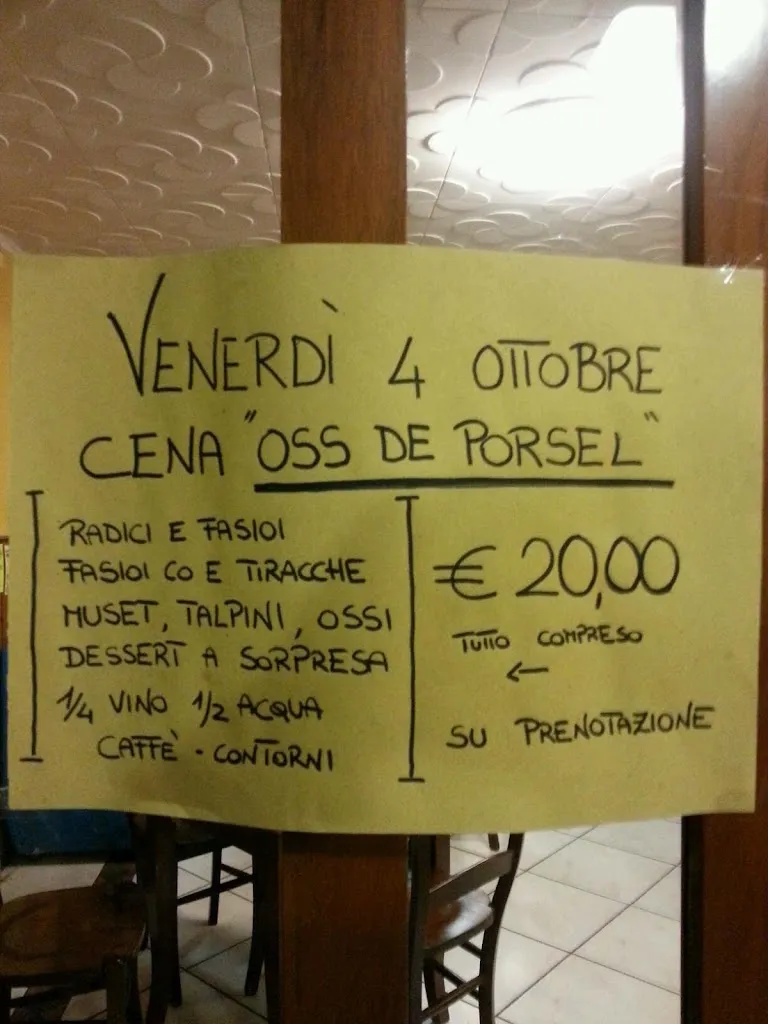 VENERDÌ 4 OTTOBRE
CENA "OSS DE PORSEL"
RADICI E FASIOI
FASIOI CO E TIRACCHE
MUSET, TALPINI, OSSI
DESSERT A SORPRESA
1/4 VINO 1/2 ACQUA
CAFFÈ - CONTORNI
€ 20,00
TUTTO COMPRESO
←
SU PRENOTAZIONE